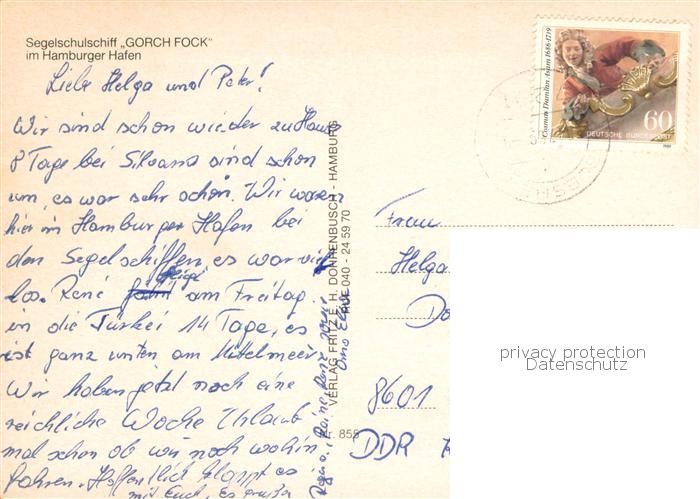 Segelschulschiff „GORCH FOCK"
im Hamburger Hafen
Liebe Helga und Peter!
Wir sind schon wieder zu Hause
8 Tage bei Silvana sind schon
um, es war sehr schön. Wir waren
hier im Hamburger Hafen bei
den Segelschiffen, es war viel
los. René fliegt am Freitag
in die Türkei 14 Tage, es
ist ganz unten am Mittelmeer.
Wir haben jetzt noch eine
reichliche Woche Urlaub
mal schon ob wir noch wohin
fahren. Hoffentlich klappt es
mit Euch, Es grüßen
VERLAG FRITZ E. H. DOHRENBUSCH - HAMBURG
RUF 040 - 24 59 70
F. 855
Cosmas Damian Asam 1686-1739
60
DEUTSCHE BUNDESPOST
1986
Frau
Helga
8601
DDR
privacy protection
Datenschutz